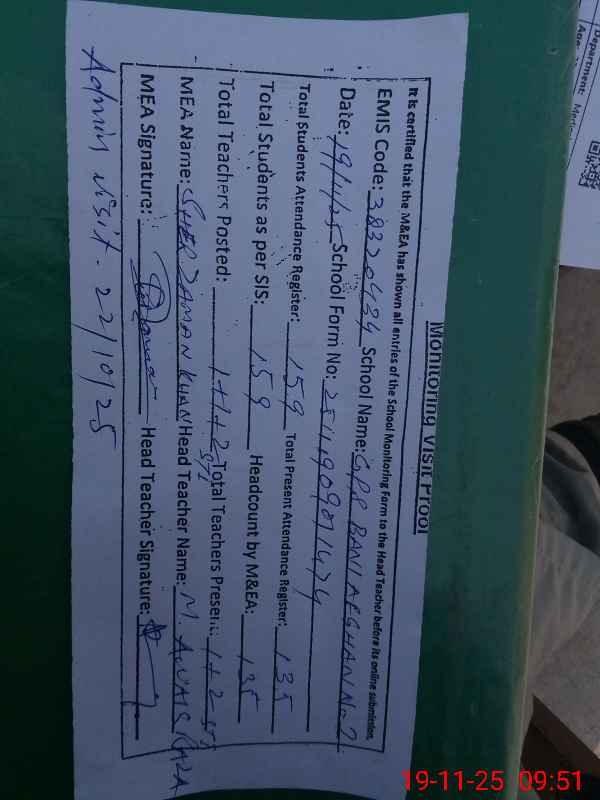 Monitoring Visit Proof
It is certified that the M&EA has shown all entries of the School Monitoring Form to the Head Teacher before its online submission.
EMIS Code: 38320434 School Name: GPS BANI AFGHAN No 2
Date: 19/11/25 School Form No: 
Total Students Attendance Register: 159 Total Present Attendance Register: 135
Total Students as per SIS: 159 Headcount by M&EA: 135
Total Teachers Posted: 1+1+2 STI Total Teachers Present: 1+2 STI
MEA Name: SHER ZAMAN KHAN Head Teacher Name: M. AWAIS RAZA
MEA Signature: Head Teacher Signature:
Admin visit - 22/10/25
Department:
19-11-25 09:51